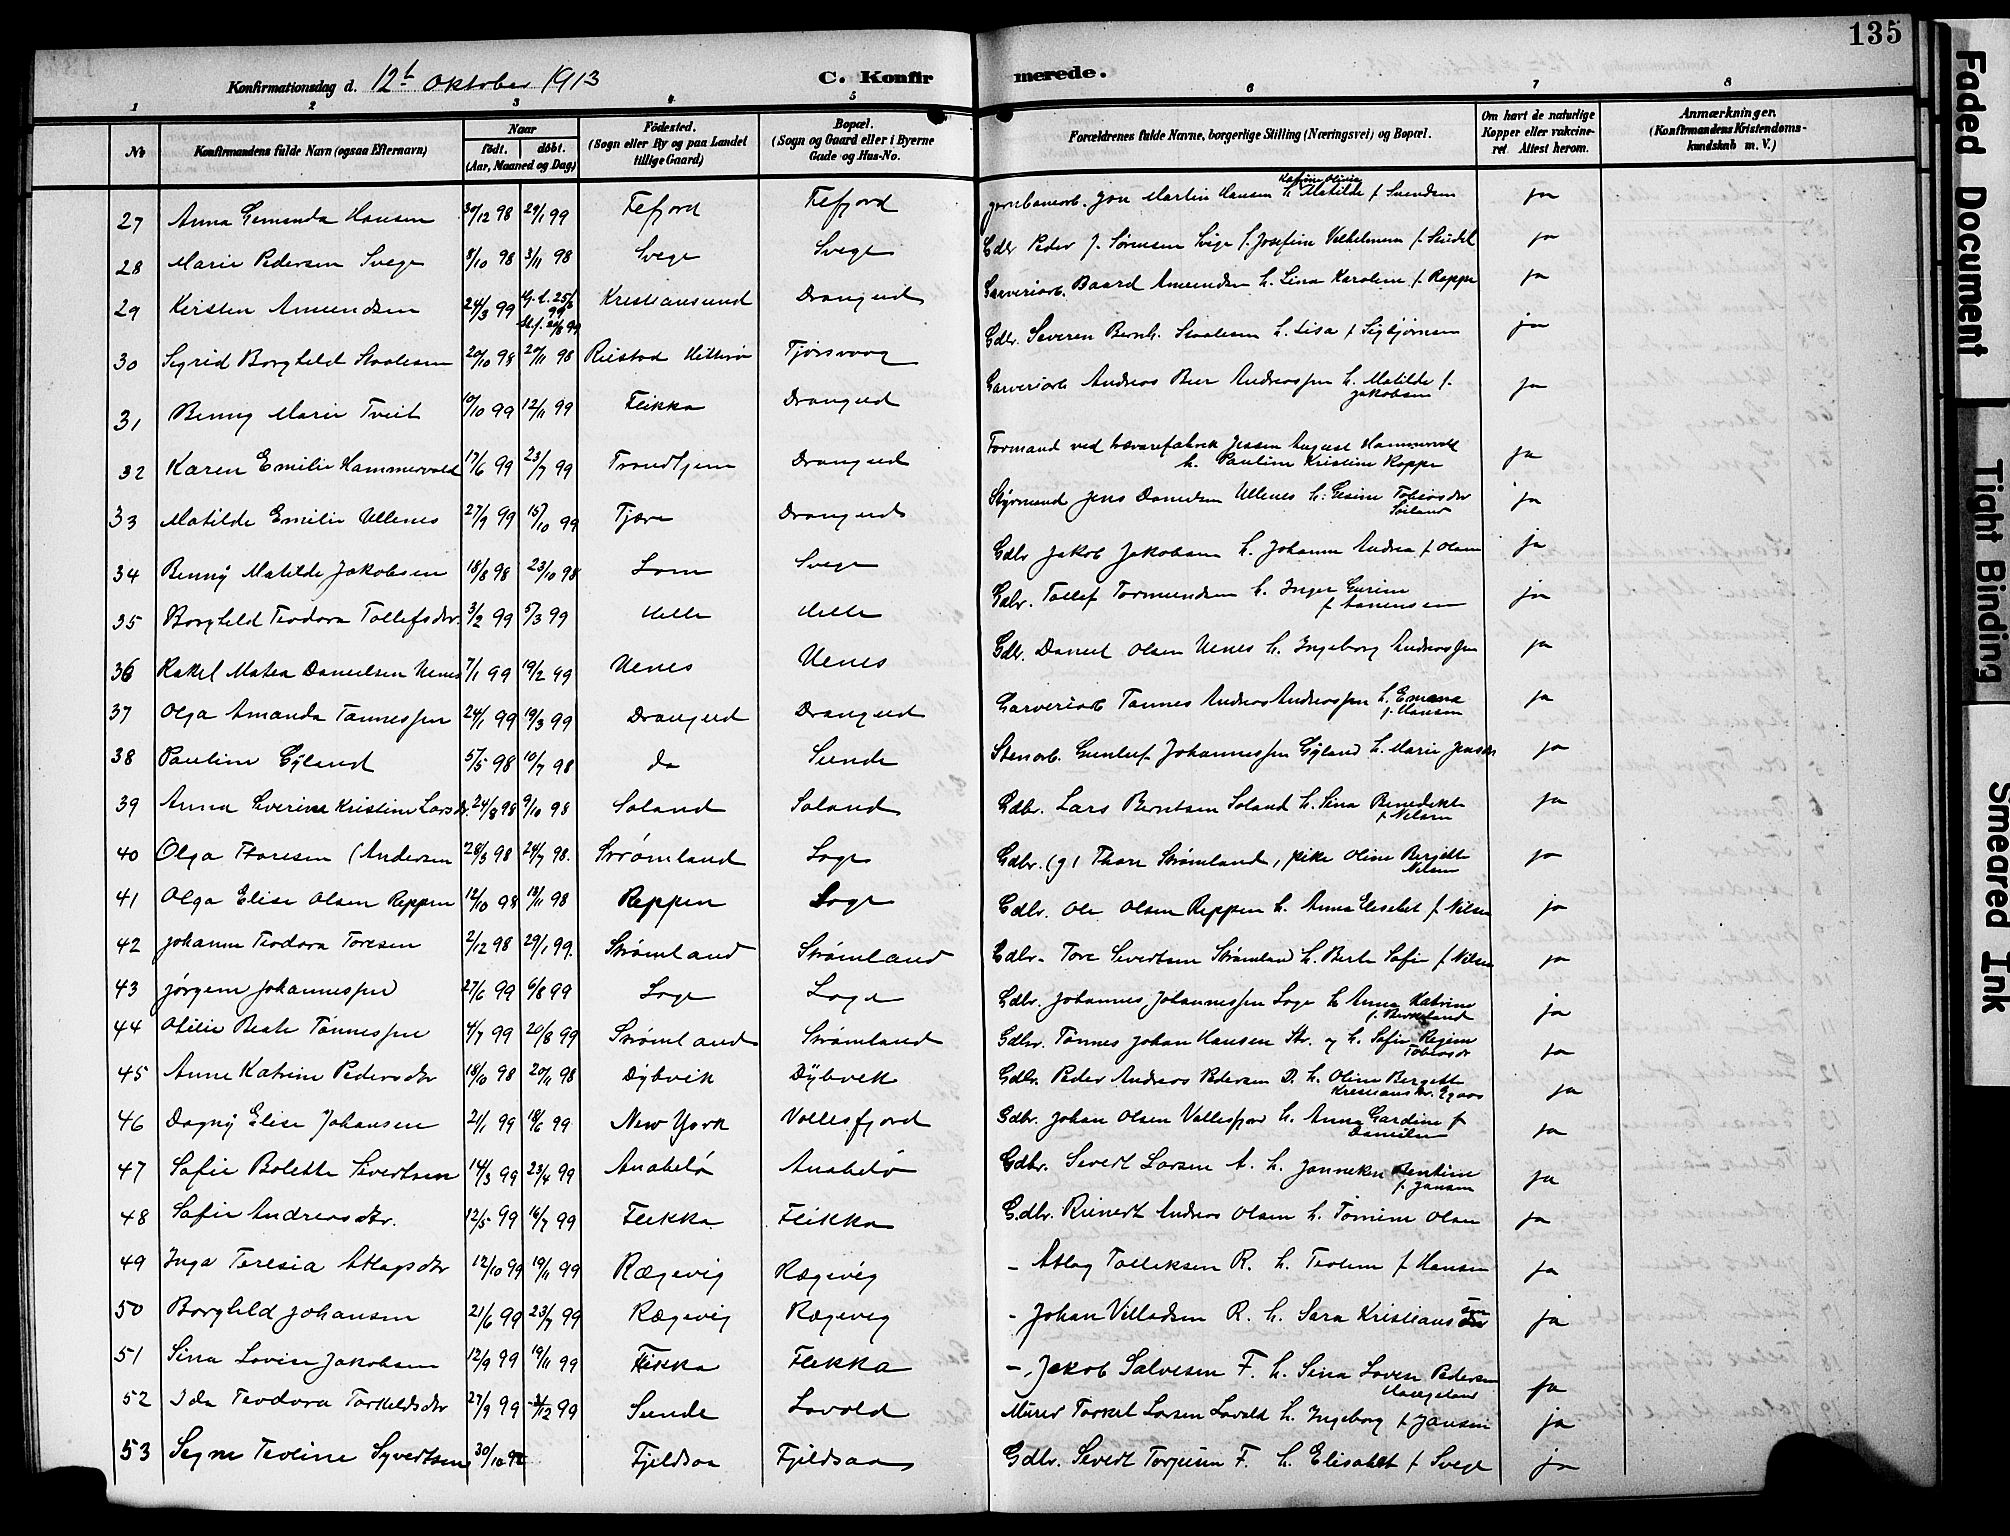 135
Konfirmationsdag d. 12t Oktober 1913 C. Konfirmerede.
1 2 3 4 5 6 7 8
No
Konfirmandens fulde Navn (ogsaa Efternavn)
Naar
födt. döbt.
(Aar, Maaned og Dag)
Födested.
(Sogn eller By og paa Landet
tillige Gaard)
Bopæl.
(Sogn og Gaard eller i Byerne
Gade og Hus-No.
Forældrenes fulde Navne, borgerlige Stilling (Næringsvei) og Bopæl.
Om havt de naturlige
Kopper eller vakcine-
ret. Attest herom.
Anmærkninger.
(Konfirmandens Kristendoms-
kundskab m. V.)
27 Anna Hansen 30/12 98 29/1 99 Fefjord Fefjord Jernbanearb. Jon Martin Hansen h. Katrine Olivia Matilde f. Svendsen ja
28 Marie Pedersen Svege 8/10 98 3/11 98 Svege Svege Gdbr. Peder J. Sørensen Svige h. Josefine Vilhelmine f. ja
29 Kirsten Amundsen 24/3 99 Kristiansund Drangeid Garveriarb. Baard Amundsen h. Lina Karoline f. Reppe ja
30 Sigrid Borghild Staalesen 20/10 98 20/11 98 Restad Hitterø Tjørsvaag Gdbr. Severen Bernh. Staalesen h. Lisa f. Sigbjørnsen ja
31 Benny Marie Tveit 10/10 99 12/11 99 Flikka Drangeid Garveriarb. Andreas Andreassen h. Matilde f. Jakobsen ja
32 Karen Emilie Hammervold 17/6 99 23/7 99 Trondhjem Drangeid Formand ved Lærfabrik Jessen August Hammervold
h. Pauline Kristine Roppe ja
33 Matilde Emilie Ullenes 27/9 99 15/10 99 Tjøre Drangeid Styrmand Jens Danielsen Ullenes h. Gesine Tobiasdtr ja
34 Benny Matilde Jakobsen 18/8 98 23/10 98 Lom Svege Gdbr Jakob Jakobsen h. Johanne Andrea f. Olsen ja
35 Borghild Teodora Tollefsdtr. 3/2 99 5/3 99 Helle Helle Gdbr. Tollef Tormundsen h. Inger Gurine f. Tønnesen ja
36 Rakel Matea Danielsen Uenes 7/1 99 19/2 99 Uenes Uenes Gdbr. Daniel Olsen Uenes h. Ingeborg Andreassen ja
37 Olga Amanda Tønnessen 24/1 99 19/3 99 Drangeid Drangeid Garveriarb Tønnes Andreas Andreassen h. Emma f. Hansen ja
38 Pauline Gyland 5/5 98 10/7 98 do Sunde Stenarb. Gunleif Johannessen Gyland h. Marie Jensdtr ja
39 Anna Severine Kristine Larsdtr. 24/8 98 9/10 98 Soland Soland Gdbr. Lars Berntsen Soland h. Sina Benedikte f. Nilsen ja
40 Olga Thoresen (Andersen 28/3 98 24/7 98. Strømland Loge Gdbr. (g) Thore Strømland, pike Oline Bergitte Nilsen ja
41 Olga Elise Olsen Reppen 12/10 98 13/11 98 Reppen Loge Gdbr. Ole Olsen Reppen h. Anna Elisebet f. Nilsen ja
42 Johanne Teodora Toresen 2/12 98 29/1 99. Strømland Strømland Gdbr. Tore Sivertsen Strømland h. Berte Sofie f. Nilsen ja
43 Jørgine Johannessen 27/6 99 6/8 99 Loge Loge Gdbr. Johannes Johannessen Loge h. Anna Katrine f. Birkeland ja
44 Otilie Beate Tønnessen 4/7 99 20/8 99 Strømland Strømland Gdbr. Tønnes Johan Hansen Str. og h. Sofie Regine Tobiasdtr ja
45 Anne Katrine Pedersdtr 18/10 98 20/11 98 Dybvik Dybvik Gdbr. Peder Andreas Pedersen D. h. Oline Bergette Kristiansdtr. Egaas ja
46 Dagny Elise Johansen 21/1 99 18/6 99 New York Vollesfjord Gdbr. Johan Olsen Vollesfjord h. Anna Gardine f. Danielsen ja
47 Sofie Bolette Sivertsen 14/3 99 23/4 99 Anabelø Anabelø Gdbr. Sivert Larsen A. h. Janneken Bentine f. Jansen ja
48 Sofie Andreasdtr. 12/5 99 16/7 99 Flikka Flikka Gdbr. Reinert Andreas Olsen h. Tomine Olsen ja
49 Inga Teresia Atlagsdtr 12/10 99 19/11 99 Rægevig Rægevig - Atlag Tolleksen R. h. Teoline f. Hansen ja
50 Borghild Johansen 21/6 99 23/7 99 Rægevig Rægevig - Johan Villadsen R. h. Sara Kristiansen ja
51 Sina Lovise Jakobsen 12/9 99 19/11 99 Flikka Flikka - Jakob Salvesen F. h. Sina Lovise Pedersen Haugeland ja
52 Ida Teodora Torkeldsdtr 27/9 99 3/12 99 Sunde Lovold Murer Torkel Larsen Lovold h. Ingeborg f. Jansen ja
53 Signe Teoline Syvertsen 30/10 98 Fjeldsaa Fjeldsaa Gdbr. Sivert Torjusen F. h. Elisabet f. Svege ja
Faded Document
Tight Binding
Smeared Ink